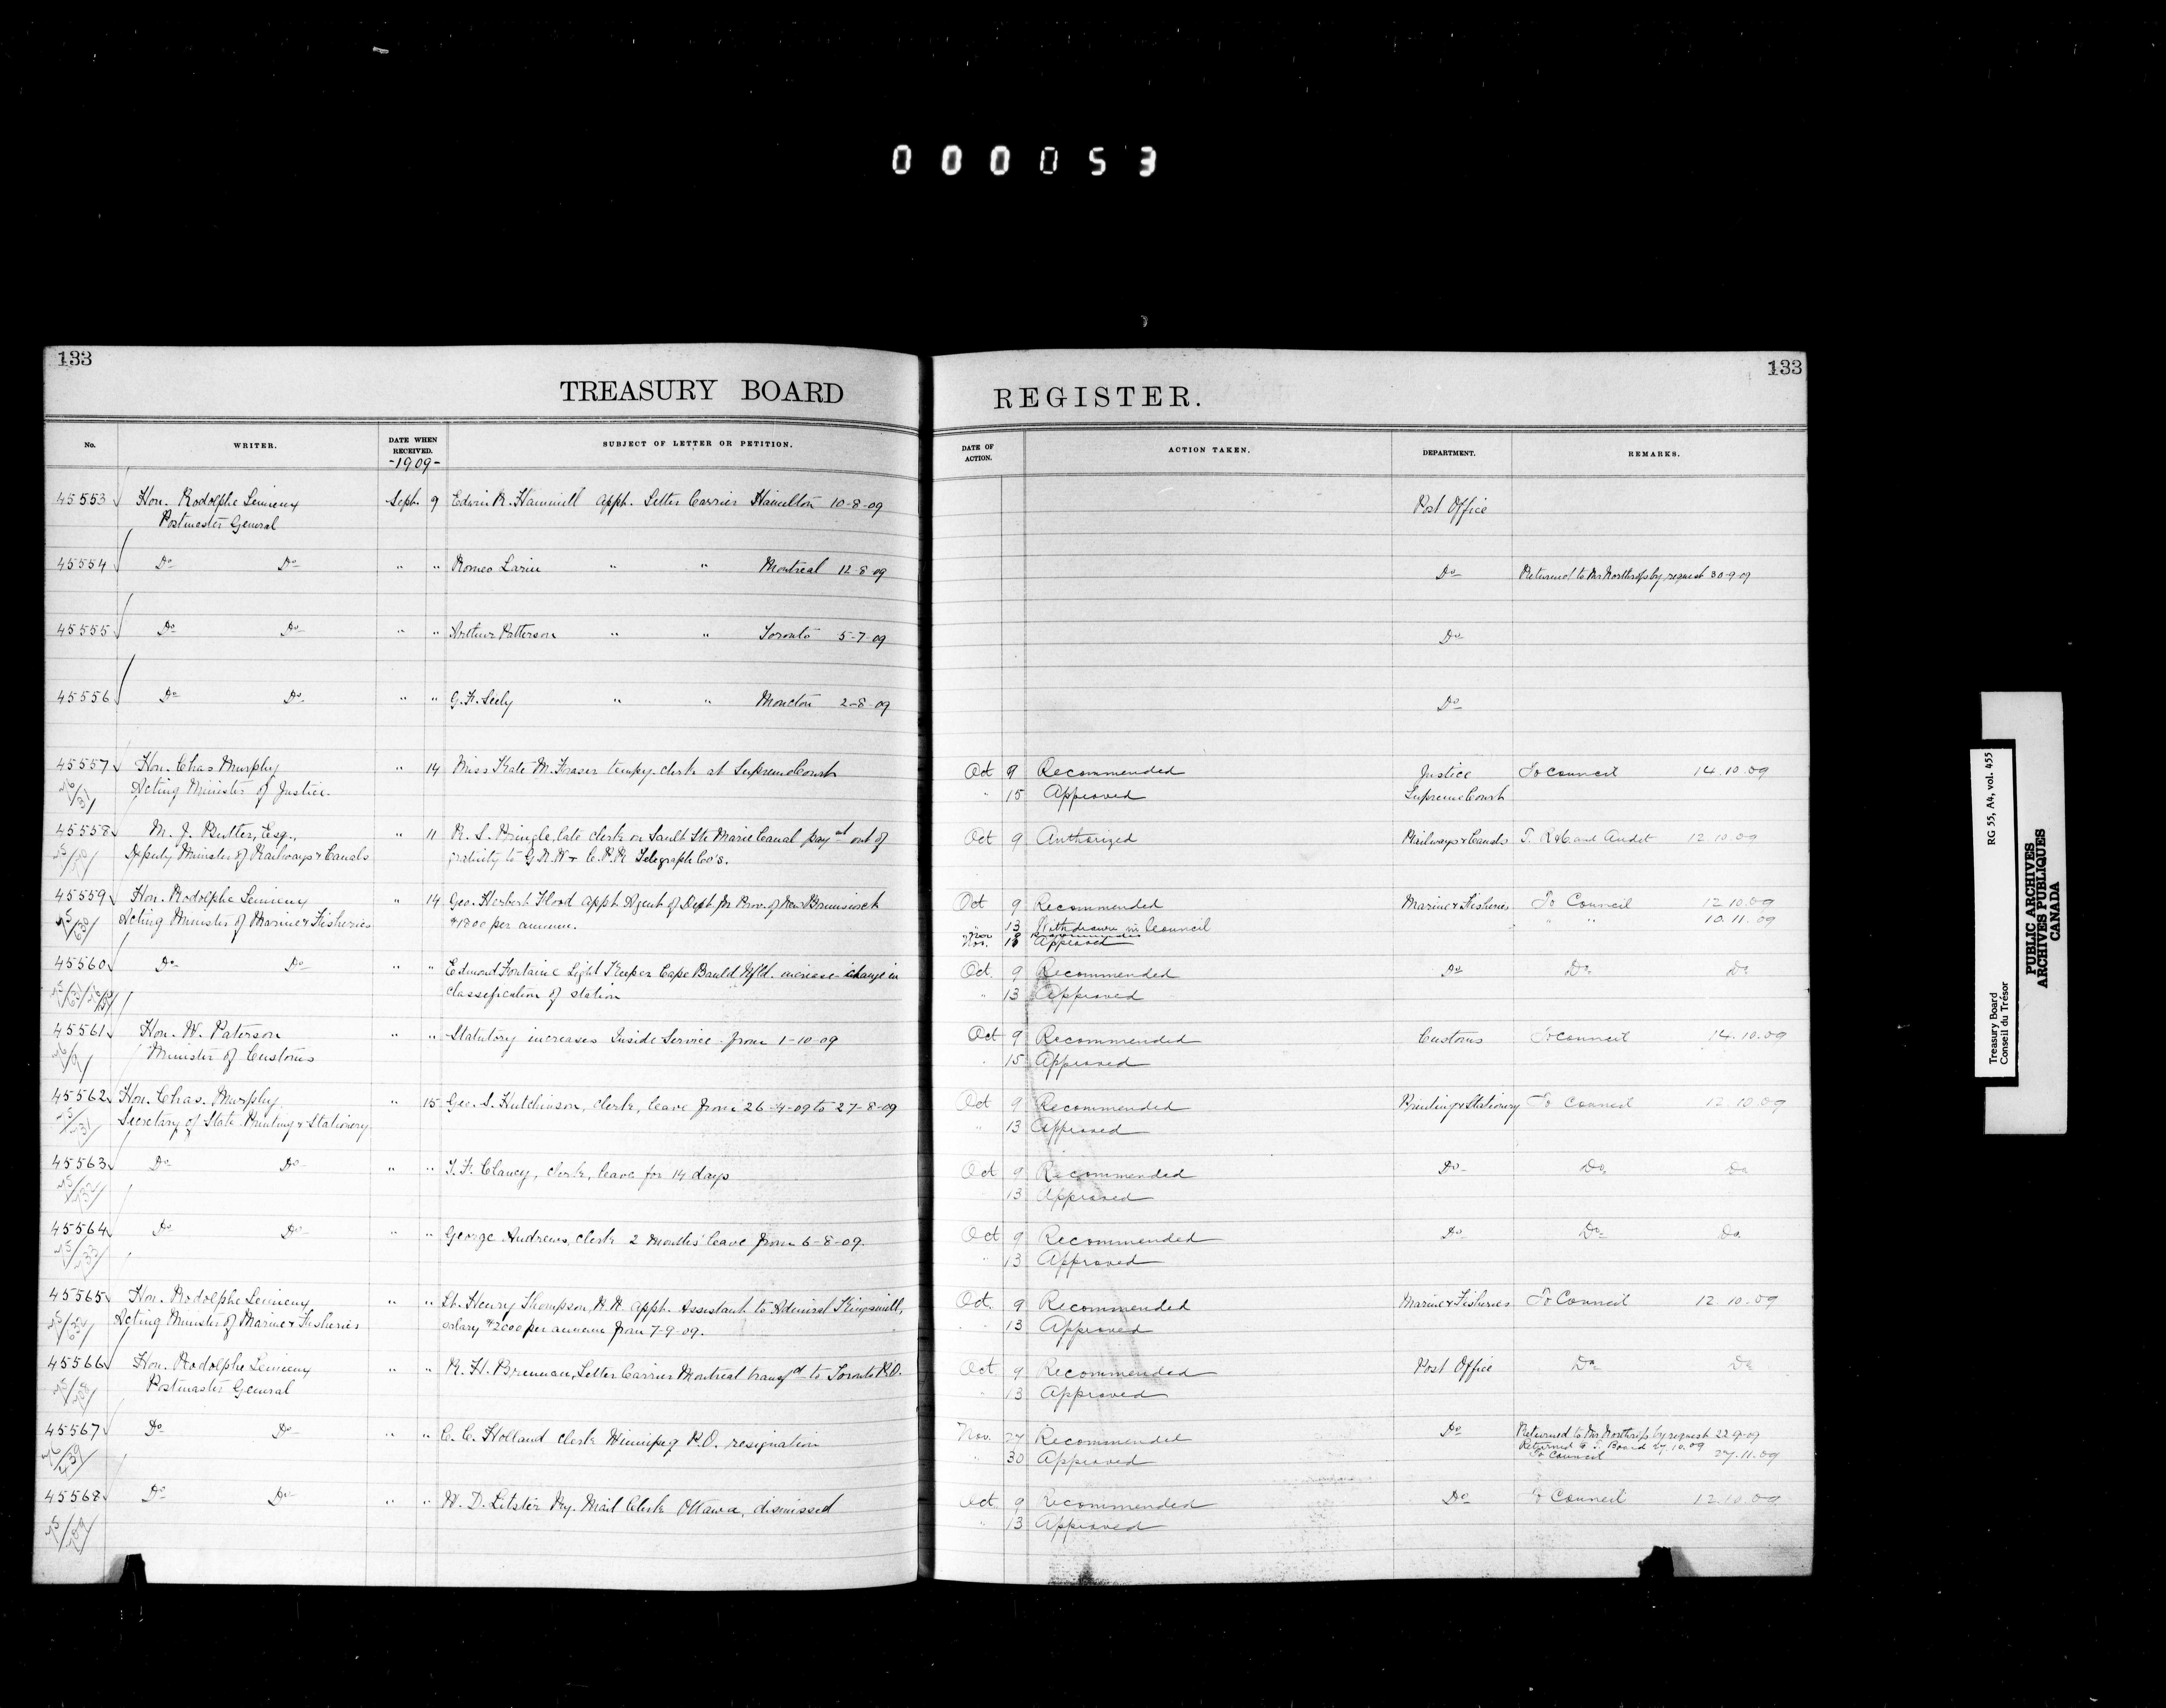 000053
133
133
TREASURY BOARD
REGISTER.
No. WRITER. DATE WHEN RECEIVED. SUBJECT OF LETTER OR PETITION. DATE OF ACTION. ACTION TAKEN. DEPARTMENT. REMARKS.
-1909-
45553 Hon. Rodolphe Lemieux Sept. 9 Edwin R. Hammill appt. Letter Carrier Hamilton 10-8-09 Post Office
Postmaster General
45554 Do Do " " Romeo Larin " " Montreal 12-8-09 Do Returned to Mr Northrop by request 30-9-09
45555 Do Do " " Arthur Patterson " " Toronto 5-7-09 Do
45556 Do Do " " G. F. Seely " " Moncton 2-8-09 Do
45557 Hon. Chas Murphy " 14 Miss Kate M. Fraser tempy. clerk at Supreme Court Oct 9 Recommended Justice To Council 14.10.09
Acting Minister of Justice. " 15 Approved Supreme Court
45558 M. J. Butler, Esq., " 11 R. S. Pringle, late clerk on Sault Ste Marie Canal pay'mt out of Oct 9 Authorized Railways & Canals T. R&C. and Audit 12.10.09
Deputy Minister of Railways & Canals gratuity to G.N.W & C.P.R Telegraph Co's.
45559 Hon. Rodolphe Lemieux " 14 Geo. Herbert Flood appt. Agent of Dept. in Prov. of New Brunswick Oct 9 Recommended Marine & Fisheries To Council 12.10.09
Acting Minister of Marine & Fisheries $1800 per annum. " 13 Withdrawn in Council " " 10.11.09
Nov 8 Recommended
Nov. Approved
45560 Do Do " " Edmond Fontaine Light Keeper Cape Bauld Nfld. increase change in Oct. 9 Recommended Do Do Do
classification of station " 13 Approved
45561 Hon. W. Paterson " " Statutory increases Inside Service from 1-10-09 Oct 9 Recommended Customs To Council 14.10.09
Minister of Customs " 15 Approved
45562 Hon. Chas. Murphy " 15 Geo. S. Hutchinson, clerk, leave from 26-4-09 to 27-8-09 Oct 9 Recommended Printing & Stationery To Council 12.10.09
Secretary of State Printing & Stationery " 13 Approved
45563 Do Do " " T. F. Clancy, clerk, leave for 14 days Oct 9 Recommended Do Do Do
" 13 Approved
45564 Do Do " " George Andrews, clerk 2 months' leave from 6-8-09. Oct 9 Recommended Do Do Do
" 13 Approved
45565 Hon. Rodolphe Lemieux " " Lt. Henry Thompson, R.N. appt. Assistant to Admiral Kingsmill, Oct. 9 Recommended Marine & Fisheries To Council 12.10.09
Acting Minister of Marine & Fisheries salary $2000 per annum from 7-9-09. " 13 Approved
45566 Hon. Rodolphe Lemieux " " R. H. Brennan, Letter Carrier Montreal transf'd to Toronto P.O. Oct 9 Recommended Post Office Do Do
Postmaster General " 13 Approved
45567 Do Do " " C. C. Holland clerk Winnipeg P.O. resignation Nov. 27 Recommended Do Returned to Mr Northrop by request 22-9-09
Returned to T. Board 27.10.09
" 30 Approved To Council 27.11.09
45568 Do Do " " W. D. Lister Ry. Mail Clerk Ottawa, dismissed Oct 9 Recommended Do To Council 12.10.09
" 13 Approved
Treasury Board
Conseil du Trésor
RG 55, A4, vol. 455
PUBLIC ARCHIVES
ARCHIVES PUBLIQUES
CANADA